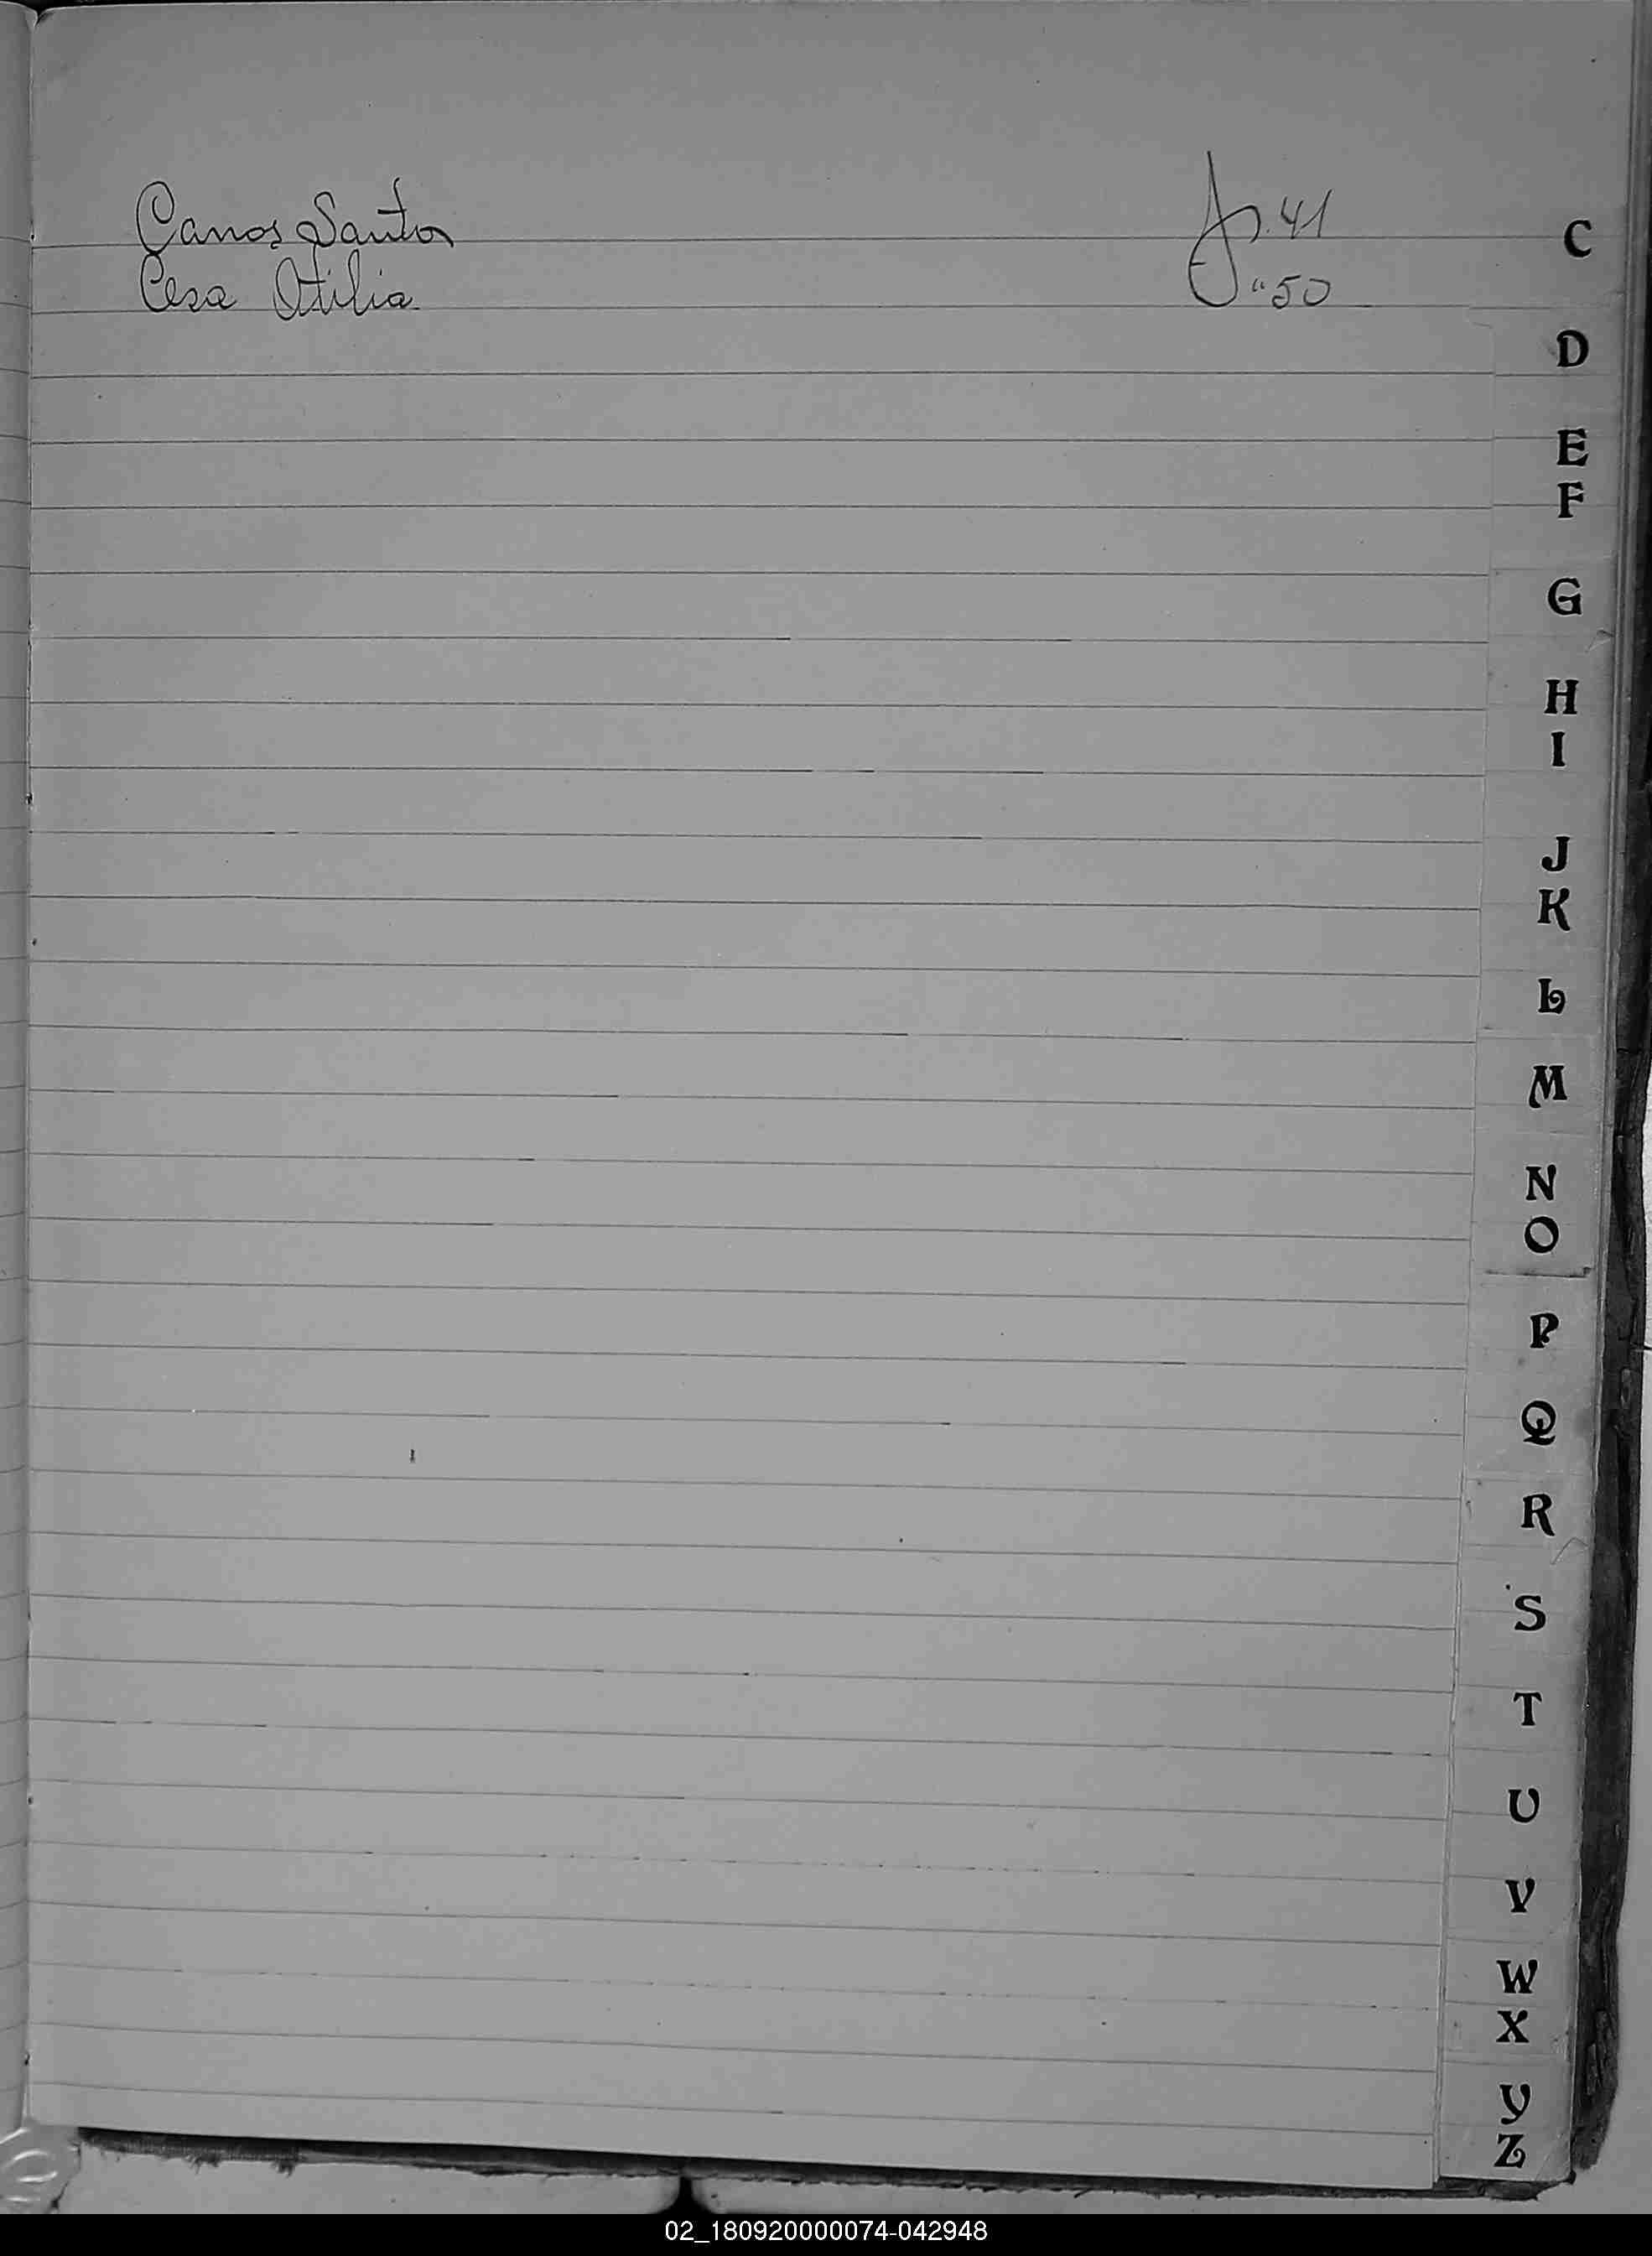 Canos Santos fs. 41
Cesa Otilia " 50
C
D
E
F
G
H
I
J
K
L
M
N
O
P
Q
R
S
T
U
V
W
X
Y
Z
02_180920000074-042948